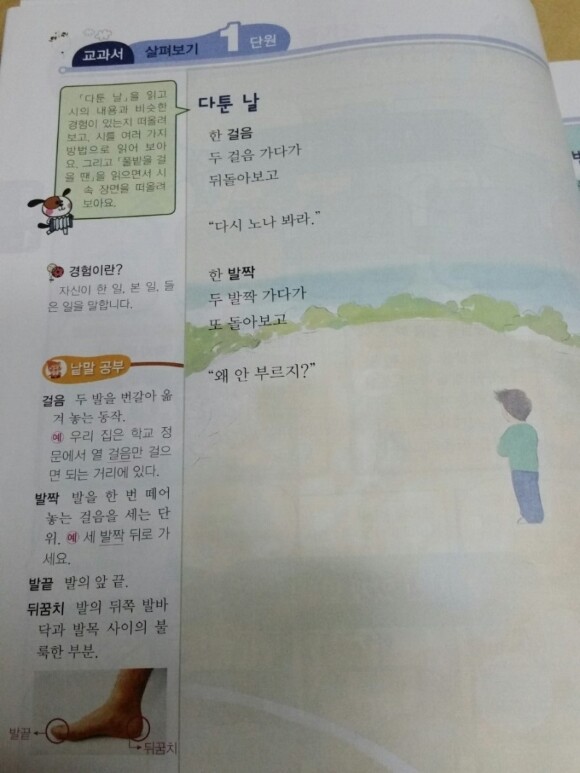 교과서 살펴보기 1 단원
「다툰 날」을 읽고
시의 내용과 비슷한
경험이 있는지 떠올려
보고, 시를 여러 가지
방법으로 읽어 보아
요. 그리고 「풀밭을 걸
을 땐」을 읽으면서 시
속 장면을 떠올려
보아요.
경험이란?
자신이 한 일, 본 일, 들
은 일을 말합니다.
낱말 공부
걸음 두 발을 번갈아 옮
겨 놓는 동작.
예 우리 집은 학교 정
문에서 열 걸음만 걸으
면 되는 거리에 있다.
발짝 발을 한 번 떼어
놓는 걸음을 세는 단
위. 예 세 발짝 뒤로 가
세요.
발끝 발의 앞 끝.
뒤꿈치 발의 뒤쪽 발바
닥과 발목 사이의 불
룩한 부분.
발끝
뒤꿈치
다툰 날
한 걸음
두 걸음 가다가
뒤돌아보고
“다시 노나 봐라.”
한 발짝
두 발짝 가다가
또 돌아보고
“왜 안 부르지?”